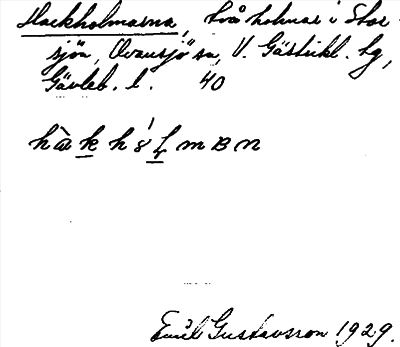 Hackholmarna, två holmar i Stor-
sjön, Ovansjö sn, V. Gästrikl. tg,
Gävleb. l. 40
Emil Gustavsson 1929.